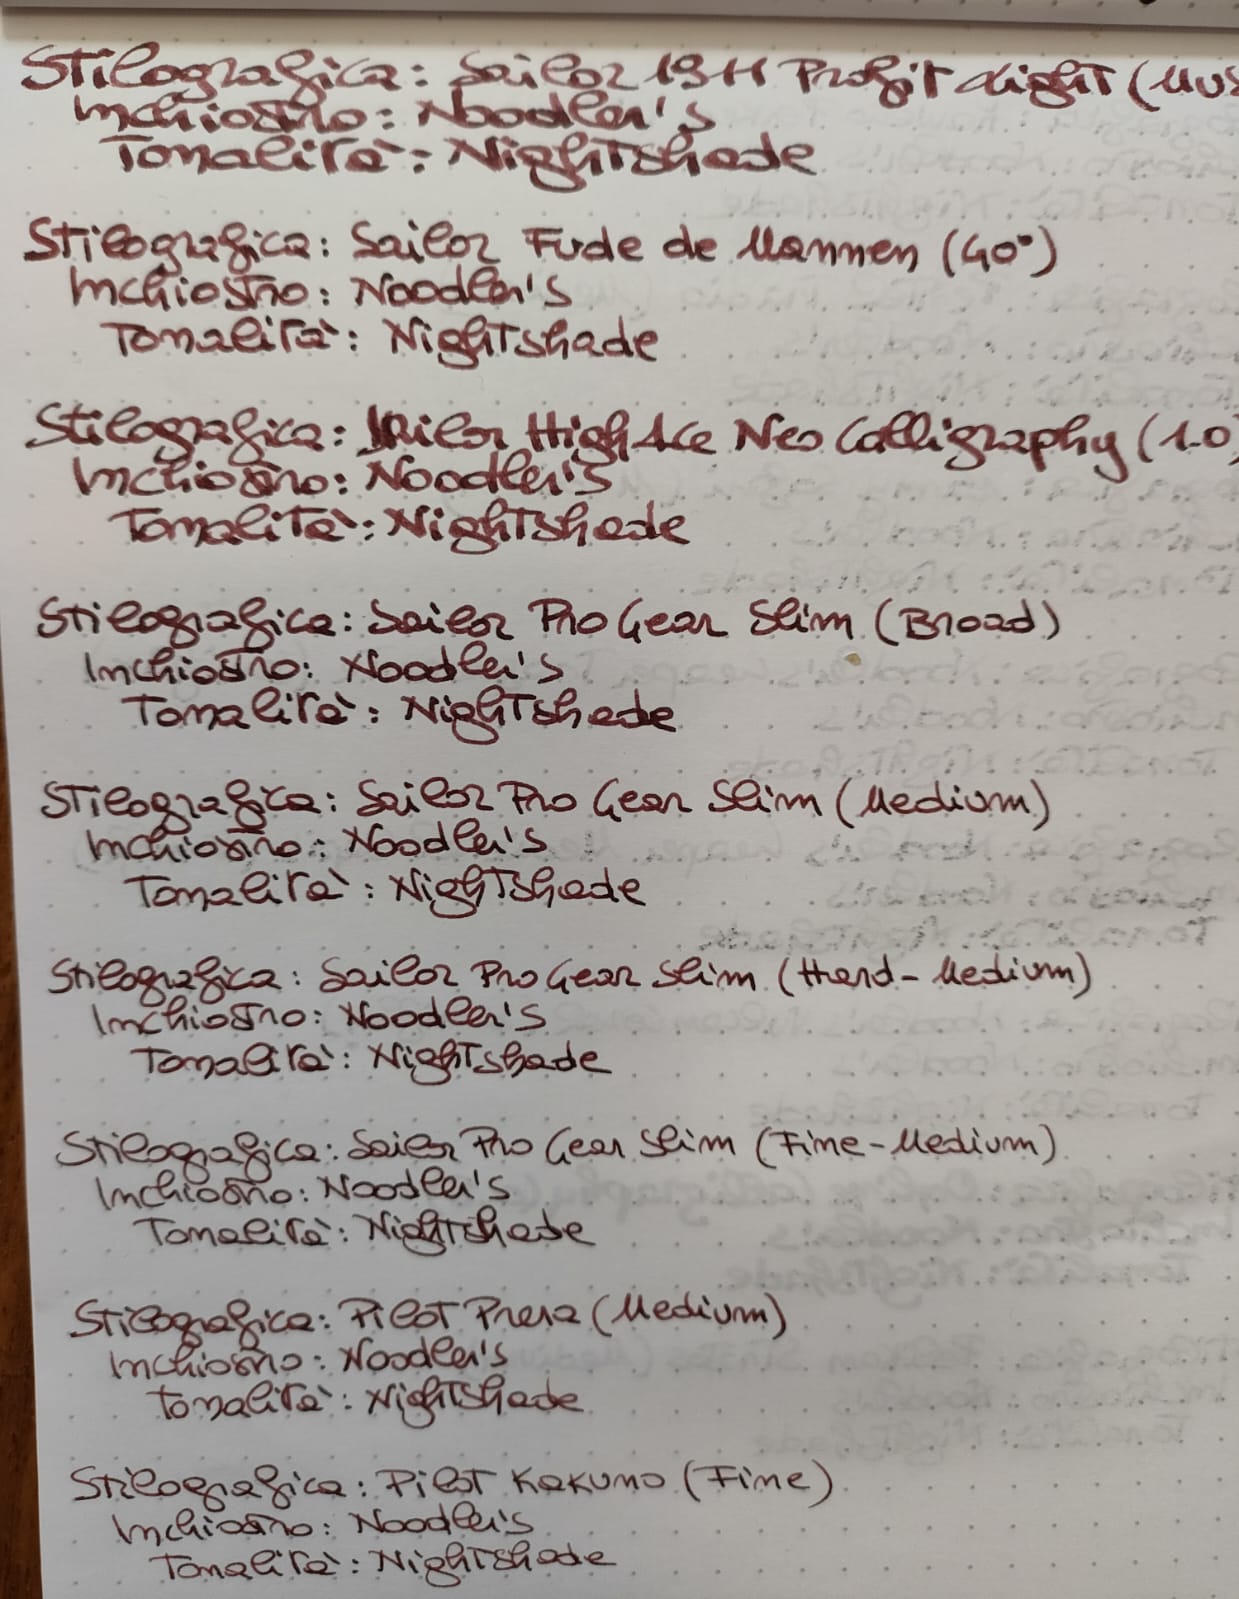 Stilografica: Sailor 1911 Profit Light (Mus
Inchiostro: Noodler's
Tonalità: Nightshade
Stilografica: Sailor Fude de Mannen (40°)
Inchiostro: Noodler's
Tonalità: Nightshade
Stilografica: Sailor HighAce Neo Calligraphy (1.0)
Inchiostro: Noodler's
Tonalità: Nightshade
Stilografica: Sailor Pro Gear Slim (Broad)
Inchiostro: Noodler's
Tonalità: Nightshade
Stilografica: Sailor Pro Gear Slim (Medium)
Inchiostro: Noodler's
Tonalità: Nightshade
Stilografica: Sailor Pro Gear Slim (Hard-Medium)
Inchiostro: Noodler's
Tonalità: Nightshade
Stilografica: Sailor Pro Gear Slim (Fine-Medium)
Inchiostro: Noodler's
Tonalità: Nightshade
Stilografica: Pilot Prera (Medium)
Inchiostro: Noodler's
Tonalità: Nightshade
Stilografica: Pilot Kakuno (Fine)
Inchiostro: Noodler's
Tonalità: Nightshade